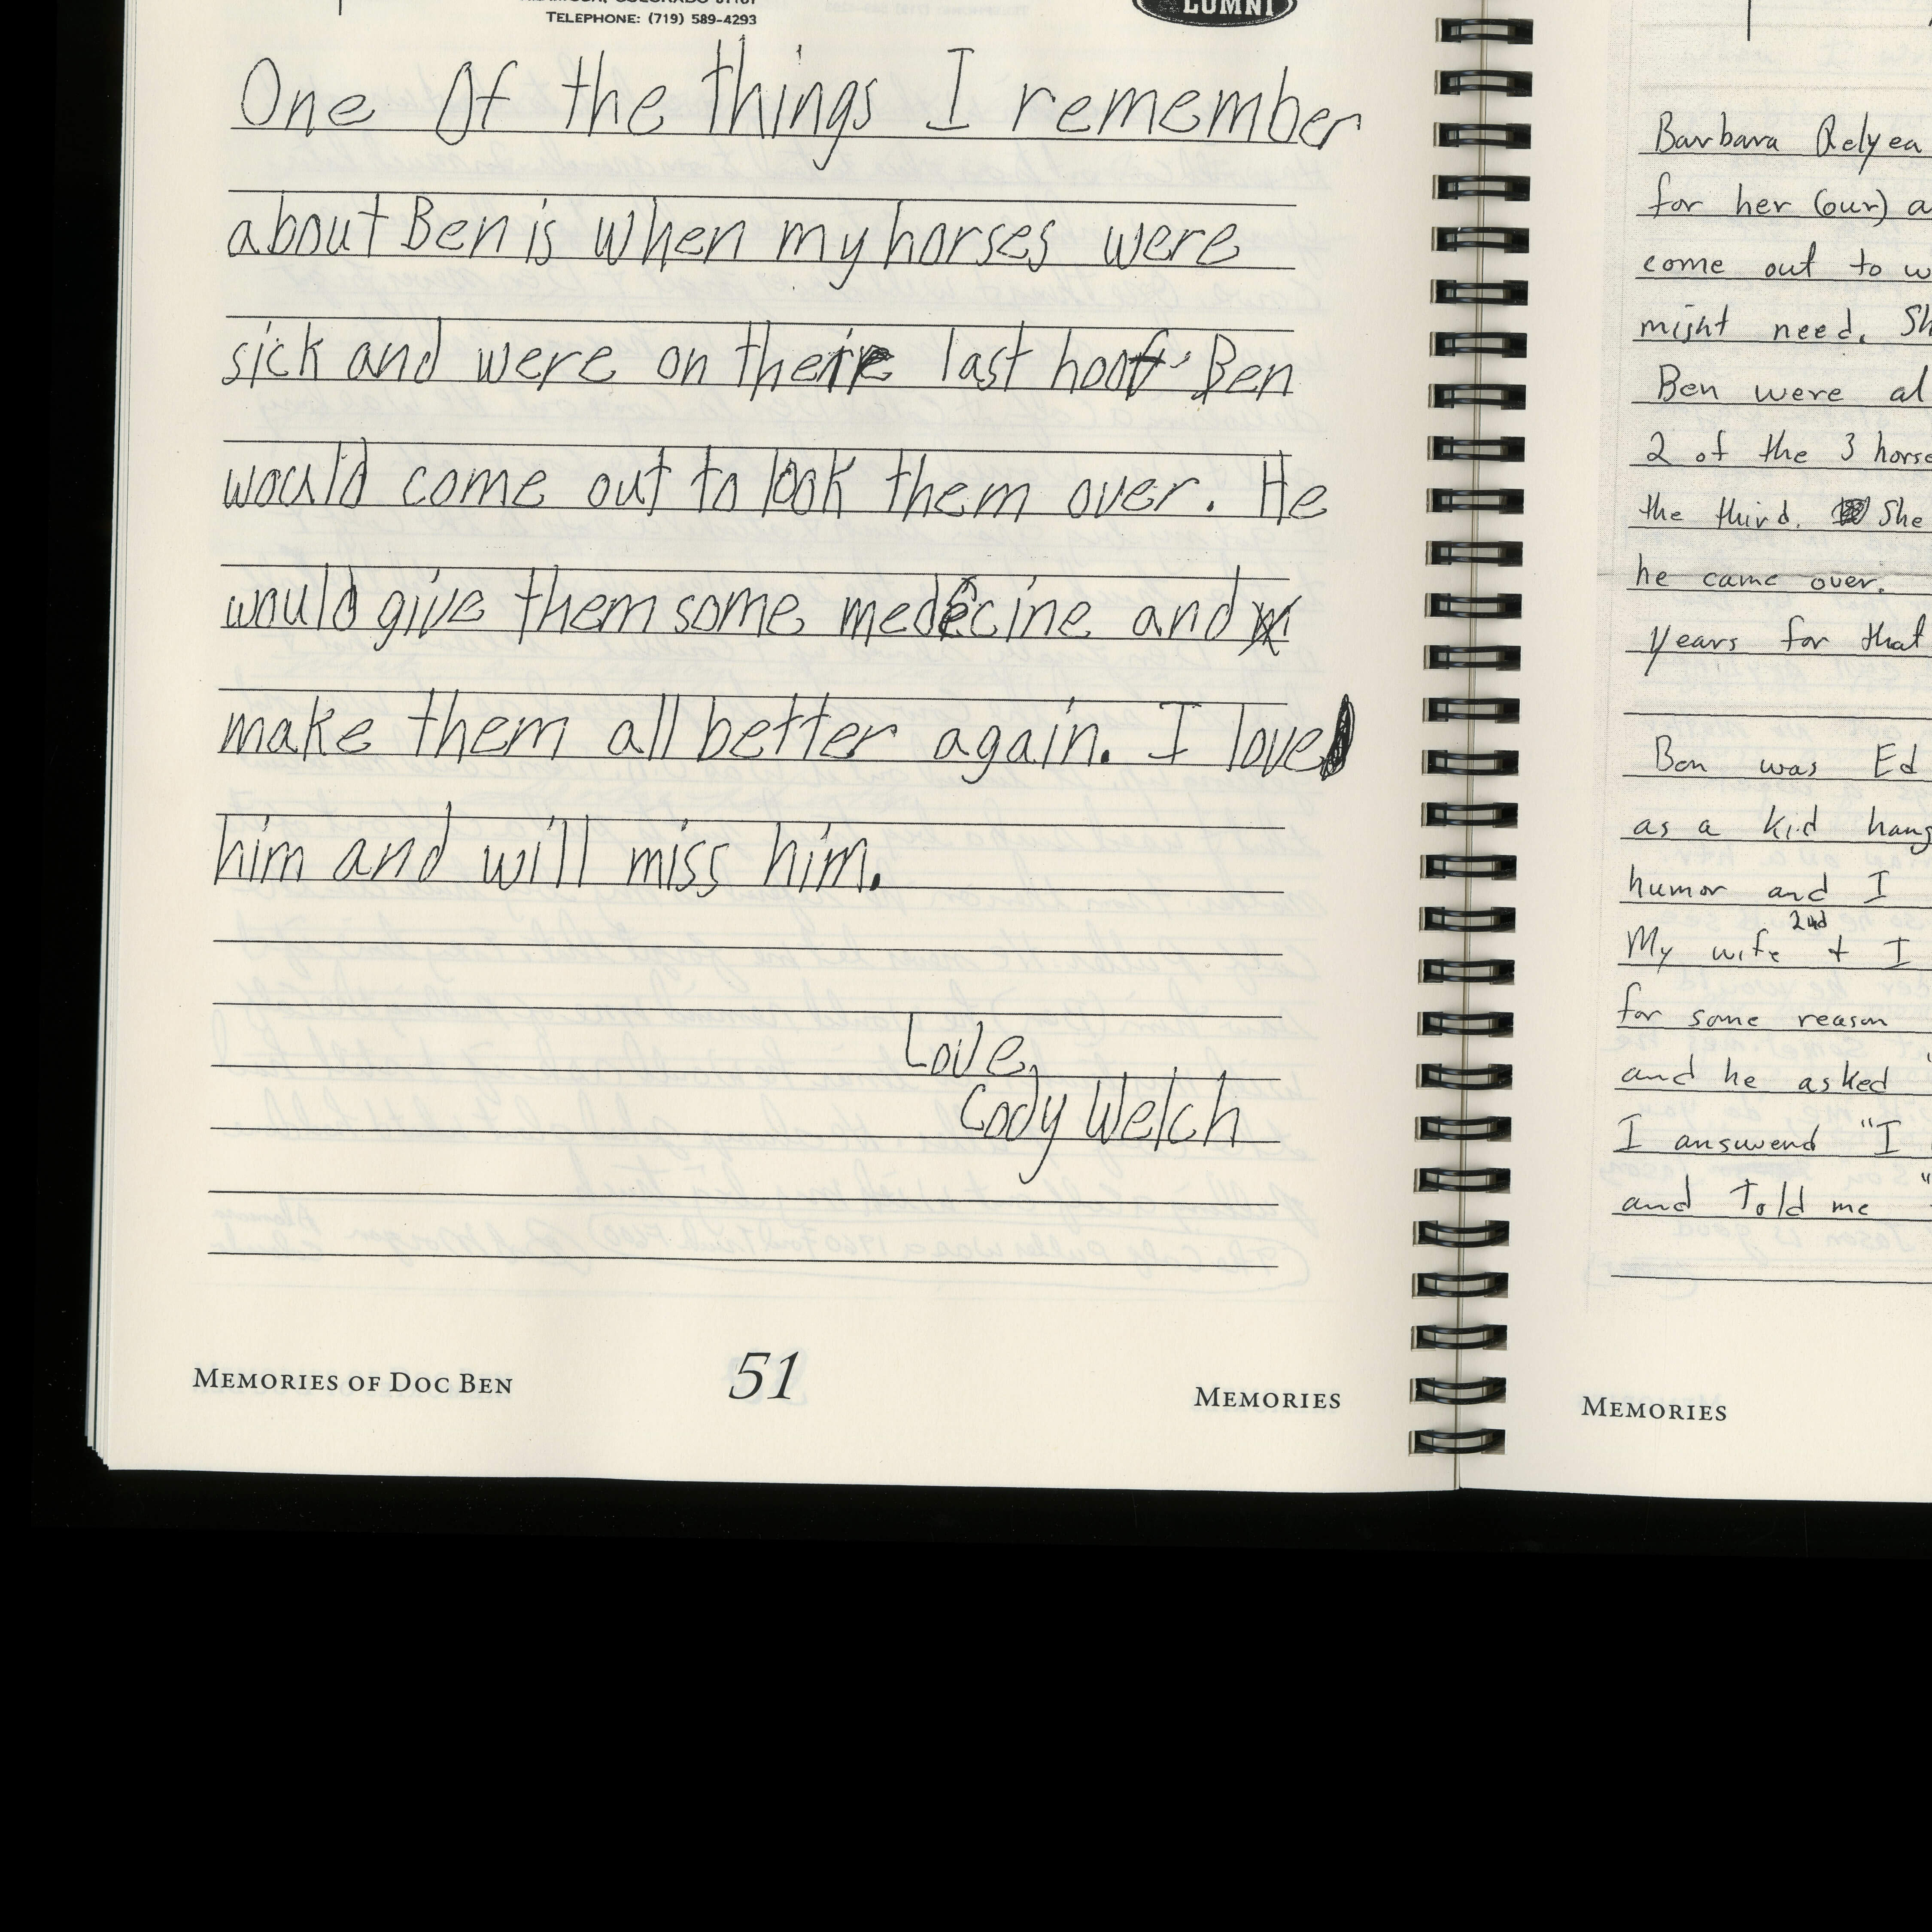 TELEPHONE: (719) 589-4293
LUMNI
One Of the things I remember
about Ben is when my horses were
sick and were on their last hoof Ben
would come out to look them over. He
would give them some medecine and
make them all better again. I love
him and will miss him.
Love,
Cody Welch
MEMORIES OF DOC BEN
51
MEMORIES
Barbara Relyea
for her (our) a
come out to w
might need. Sh
Ben were al
2 of the 3 horse
the third. She
he came over.
years for that
Ben was Ed
as a kid hang
humor and I
2nd
My wife + I
for some reason
and he asked "
I answerd "I
and Told me "
MEMORIES